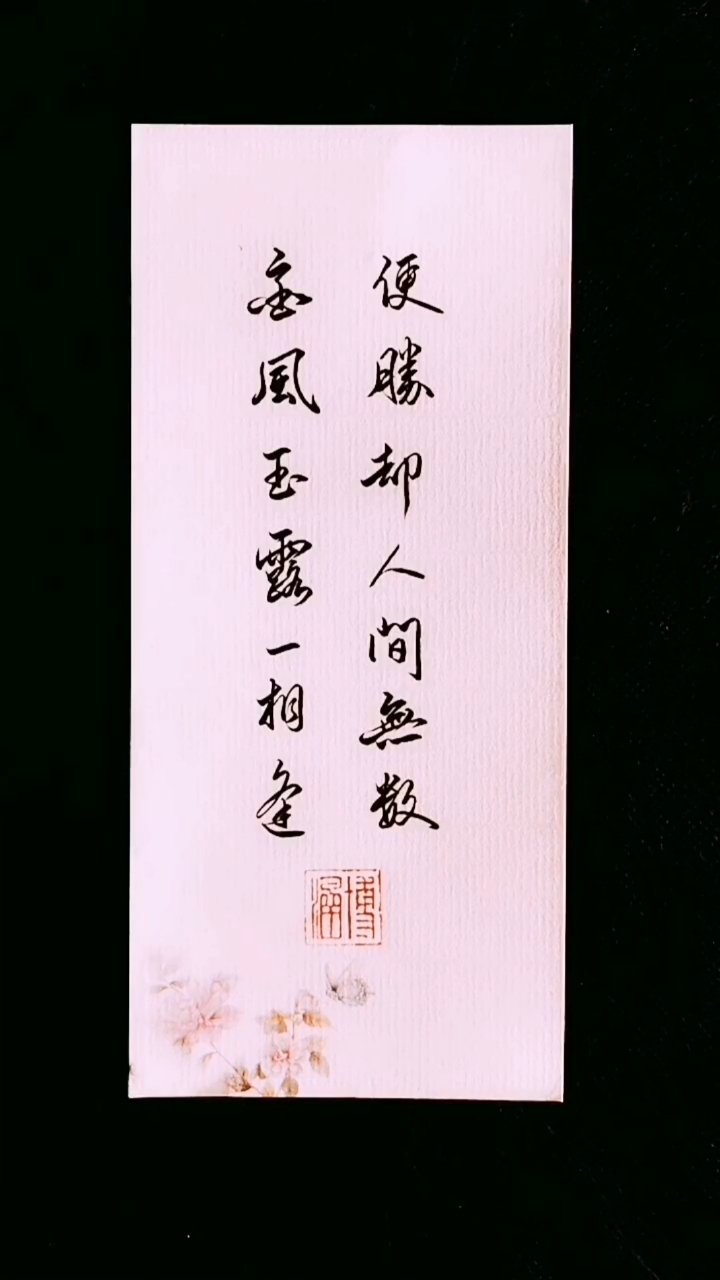 金風玉露一相逢
便勝却人間無数